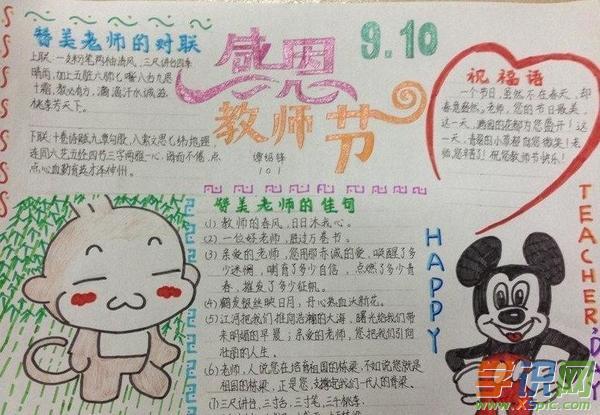 赞美老师的对联
上联:一支粉笔两袖清风,三尺讲台四季
晴雨,加上五脏六腑七嘴八舌九思
十霜,教必有方,滴滴汗水诚滋
桃李芳天下。
下联:十卷诗赋九章勾股,八索文思七纬地理,
连同六艺五经四书三字两雅一心,诲而不倦,点
点心血勤育英才泽神州。
感恩
教师节
9.10
谭绍锋
101
祝福语
一个节日,虽然不在春天,却
春意盎然。老师,您的节日最美,
这一天,满园的花都为您盛开!这
一天,青翠的小草都向您微笑!老
师,您辛苦了!祝您教师节快乐!
赞美老师的佳句
(1) 教师的春风,日日沐我心。
(2) 一位好老师,胜过万卷书。
(3) 亲爱的老师,您用那赤诚的爱,唤醒了多
少迷惘,哺育了多少自信,点燃了多少青
春,摧发了多少征帆。
(4) 鹤发银丝映日月,丹心热血沃新花。
(5) 江河把我们推向浩瀚的大海,曙光给我们带
来明媚的早晨;亲爱的老师,您把我们引向
壮丽的人生。
(6) 老师,人说您在培育祖国的栋梁,不如说您就是
祖国的栋梁,正是您,支撑起我们一代人的脊梁。
(7) 三尺讲台,三寸舌,三寸笔,三千桃李
HAPPY
TEACHER'
学识网
Xspic.com